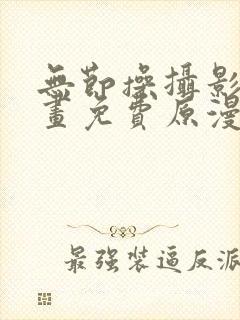 無節操攝影
畫免費原漫
最强装逼反派